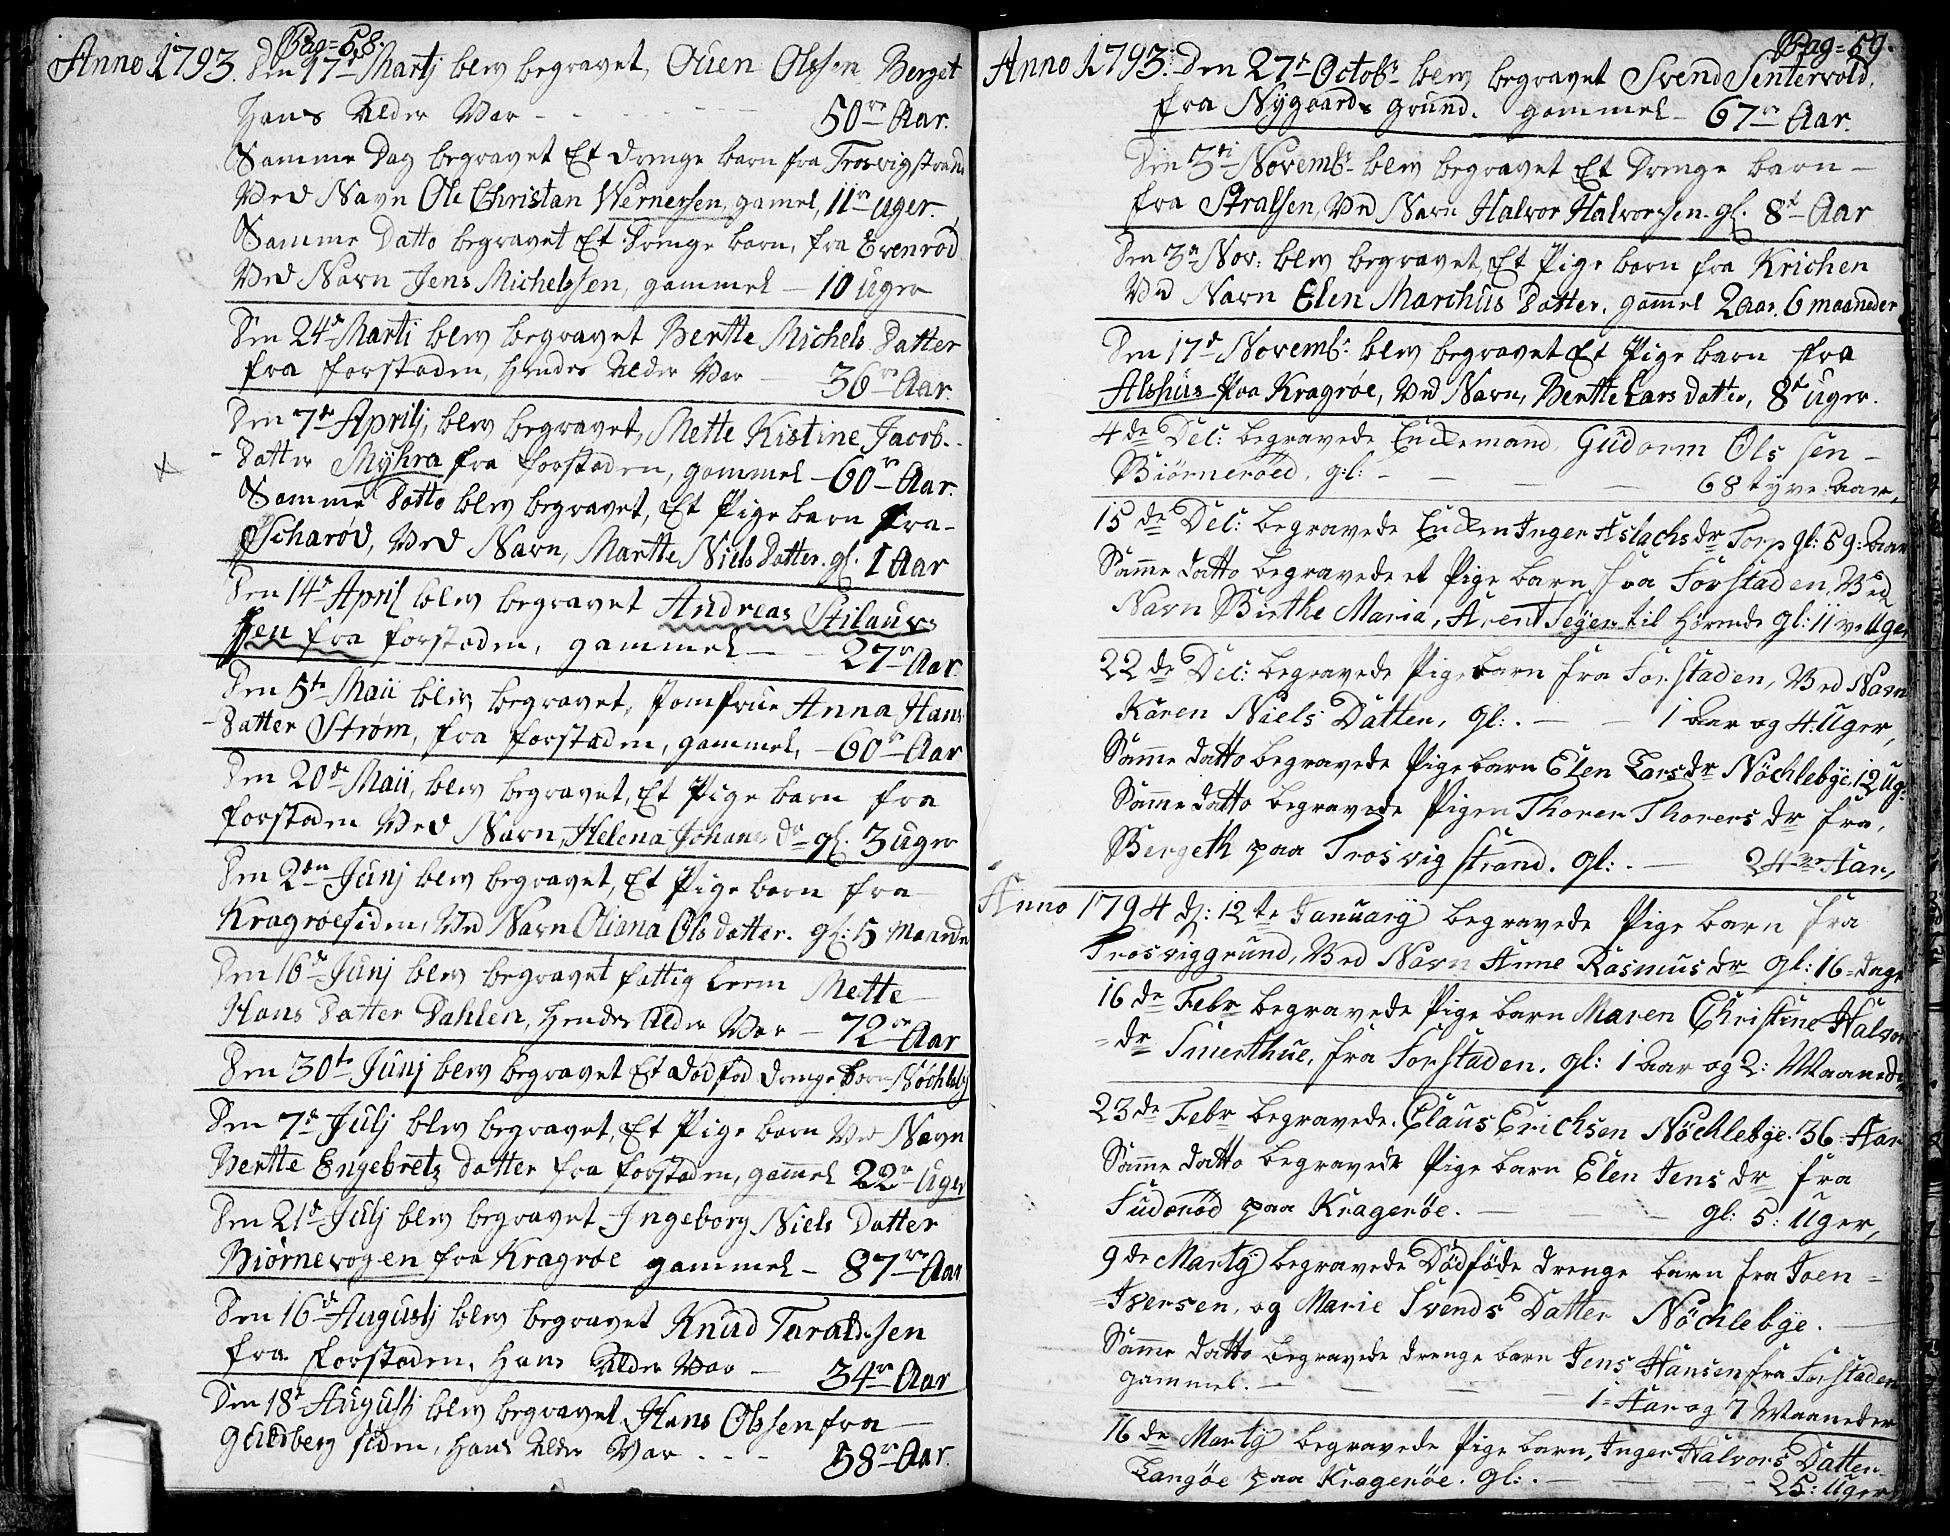 Pag=58.
Anno 1793. Den 17de Martj blev begravet, Ouen Olssen Berget
Hans Alder Var - - - - 50ve Aar.
Samme Dag begravet Et drenge barn fra Trosvigstrand
Ved Navn Ole Christan Wernersen, gamel, 11ve uger.
Samme Datto begravet Et drenge barn, fra Evenrød
Ved Navn Jens Michelssen, gammel — 10 uger
Den 24de Marti blev begravet Bertte Michels Datter
fra forstaden, Hendes Alder Var — 36ve Aar.
Den 7de Aprilj, blev begravet, Mette Kistine Jacob-
-Datter Myhra fra forstaden, gammel — 60ve Aar.
Samme Datto blev begravet, Et Pige barn fra-
Scharød, Ved Navn, Martte Niels Datter. gl. 1 Aar
Den 14de April blev begravet Andreas Stilauv-
sen fra forstaden, gammel — 27ve Aar
Den 5te Maii blev begravet, Jomfrue Anna Hans
-Datter Strøm, fra forstaden, gammel, — 60ve Aar
Den 20de Maii, blev begravet, Et Pige barn fra
forstaden Ved Navn, Helena Johans Dr gl. 3 uger
Den 2den Junj blev begravet, Et Pige barn fra
Kragrøesiden, Ved Navn Oliana Ols datter. gl: 5 Maande
Den 16de Junj blev begravet fattig Leem Mette
Hans Datter Dahlen, Hendes Alder Var — 72ve Aar
Den 30te Junj blev begravet Et dødfød drenge barn Nøchleby
Den 7de Julj blev begravet, Et Pige barn Ved Navn
Bertte Engebretz datter fra forstaden, gamel 22ve Uger
Den 21de Julj blev begravet Ingeborg Niels Datter
Biørnevogen fra Kragrøe gammel — 87ve Aar
Den 16de Augustj blev begravet Knud Taraldssen
fra forstaden, Hans Alder Var — 34ve Aar
Den 18de Augustj blev begravet Hans Olssen fra
Guldberg siden, Hans Alder Var . . - - 58ve Aar.
Pag=59.
Anno 1793. Den 27de Octobr blev begravet Svend Sentervold,
fra Nygaards grund. gammel — 67ve Aar.
Den 3ti Novembr blev begravet Et Drenge barn —
fra Stralsen, Ved Navn Halvor Halvorssen. gl. 8te Aar
Den 3de Nov: blev begravet, Et Pige barn fra Krichen
Ved Navn Elen Marchus Datter. gamel 2 aar. 6 maaneder
Den 17de Novembr: blev begravet Et Pige barn fra
Alshus paa Kragrøe, Ved Navn, Bertte Lars datter, 8te uger.
4de Dec: begravede Enckemand, Gudorm Ols sen —
Biørnerøed, gl: - — — — 68 tyve Aar,
15de Dec: begravede Encken Inger Aslachs dr Torp gl: 59: aar
Samme datto begravede et Pige barn, fra Forstaden, Ved
Navn Birthe Maria, Arent Seyers til hørende gl: 11 ve Uger
22de Dec: begravede Pige barn fra Forstaden, Ved Navn
Karen Niels Datter, gl: . — — 1 Aar og 4 Uger,
Samme datto begravede Pige barn Elen Lars dr Nöchlebye, 12 Ugr
Samme datto begravede Pigen Thoren Thorers dr fra,
Bergeth paa Trosvig strand. gl: . — 24 ve Aar,
Anno 1794 d: 12te Januarÿ begravede Pige barn fra
Trosviggrund, Ved Navn Anne Rasmus dr gl: 16 = dage
16de Febr begravede Pige barn Maren Christine Halvor
=dr Smerthue, fra Forstaden. gl: 1 Aar og 2: Maaneder
23de Febr begravede. Claus Erichsen Nöchlebye. 36 = Aar
Samme datto begravede Pige barn Elen Jens dr fra
Suderød paa Kragerøe. — — — gl: 5: Uger,
9de Martÿ begravede Dødføde drenge barn fra Joen =
=Iversen, og Marie Svends Datter Nöchlebye.
Samme datto begravede drenge barn Jens Hansen, fra Forstaden
gammel. — — — — 1 = Aar og 7 Maaneder
16de Martÿ begravede Pige barn, Inger Halvors Datter
Langøe paa Kragerøe. gl: . — — 25: Uger